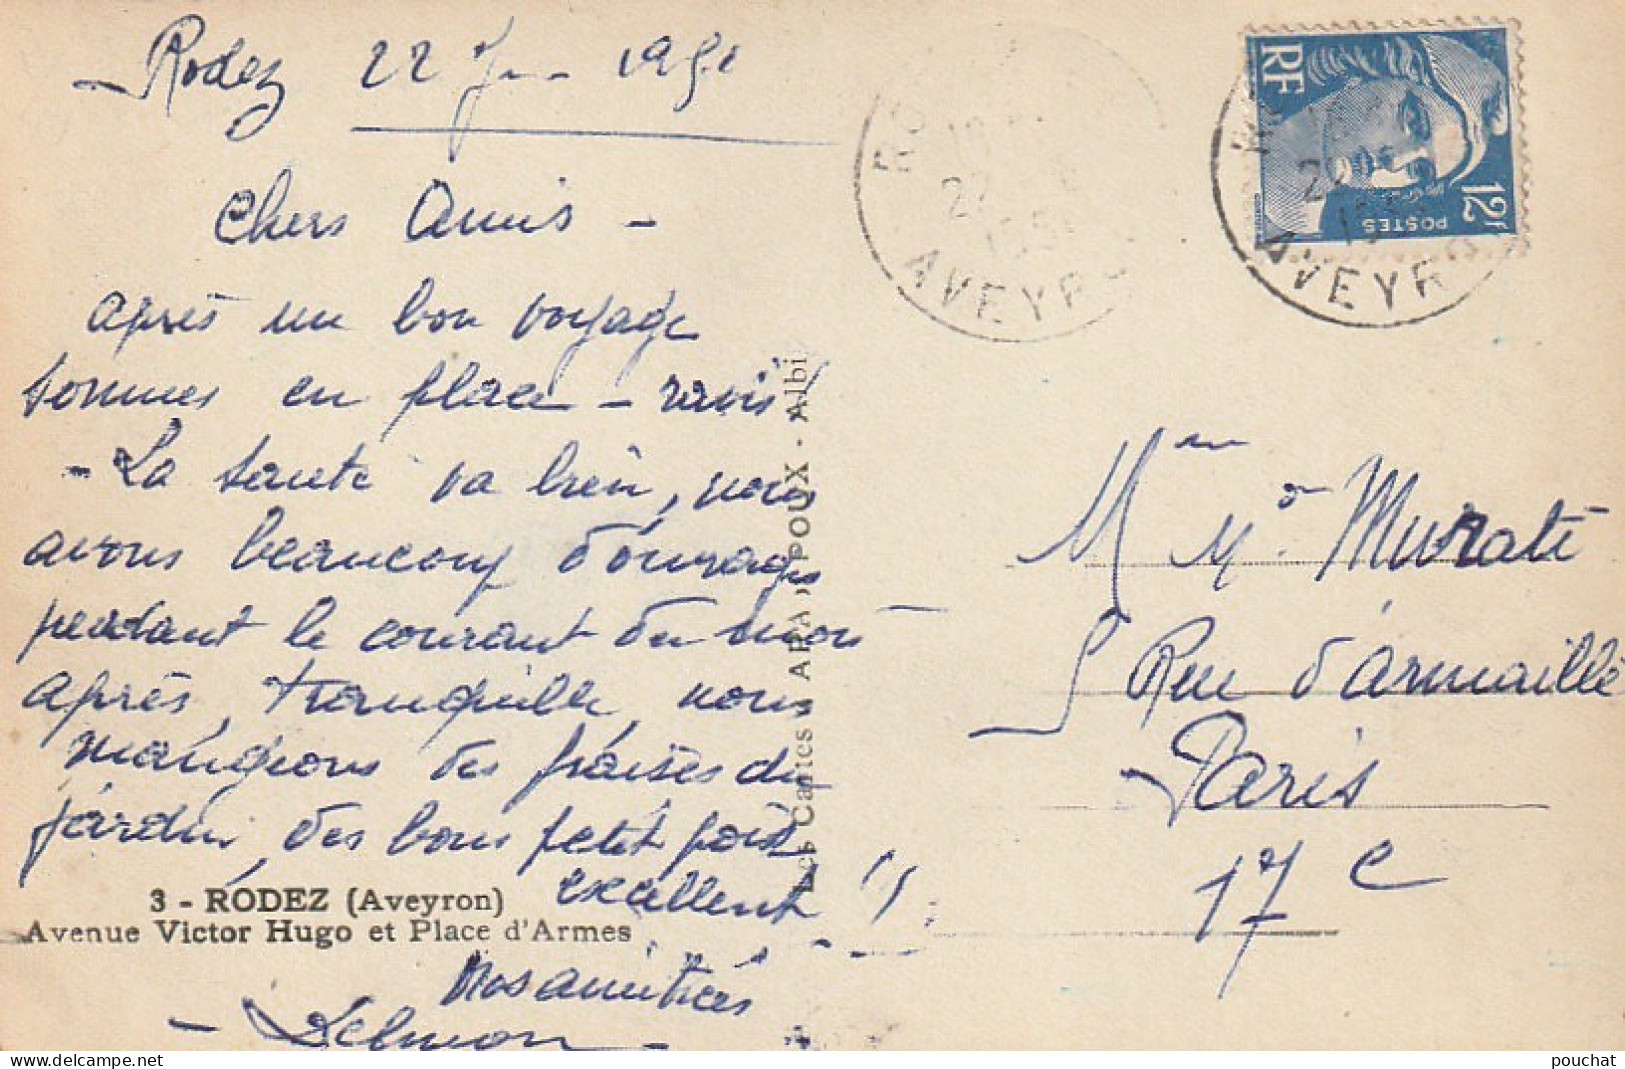 Rodez 22 1951
Chers Amis -
après un bon voyage
sommes en place - ravis
- La santé va bien, nous
avons beaucoup d'ouvrages
pendant le courant du mois
après, tranquille, nous
mangeons des fraises du
jardin, des bons petit pois
excellent !!
3 - RODEZ (Aveyron)
Avenue Victor Hugo et Place d'Armes
Nos amitiés
- Delmon -
Les Cartes APA, POUX - Albi
AVEYR
RF
POSTES
12f
22
AVEYR
Mme Mr Murati
5 Rue d'Armaillé
Paris
17e
pouchat